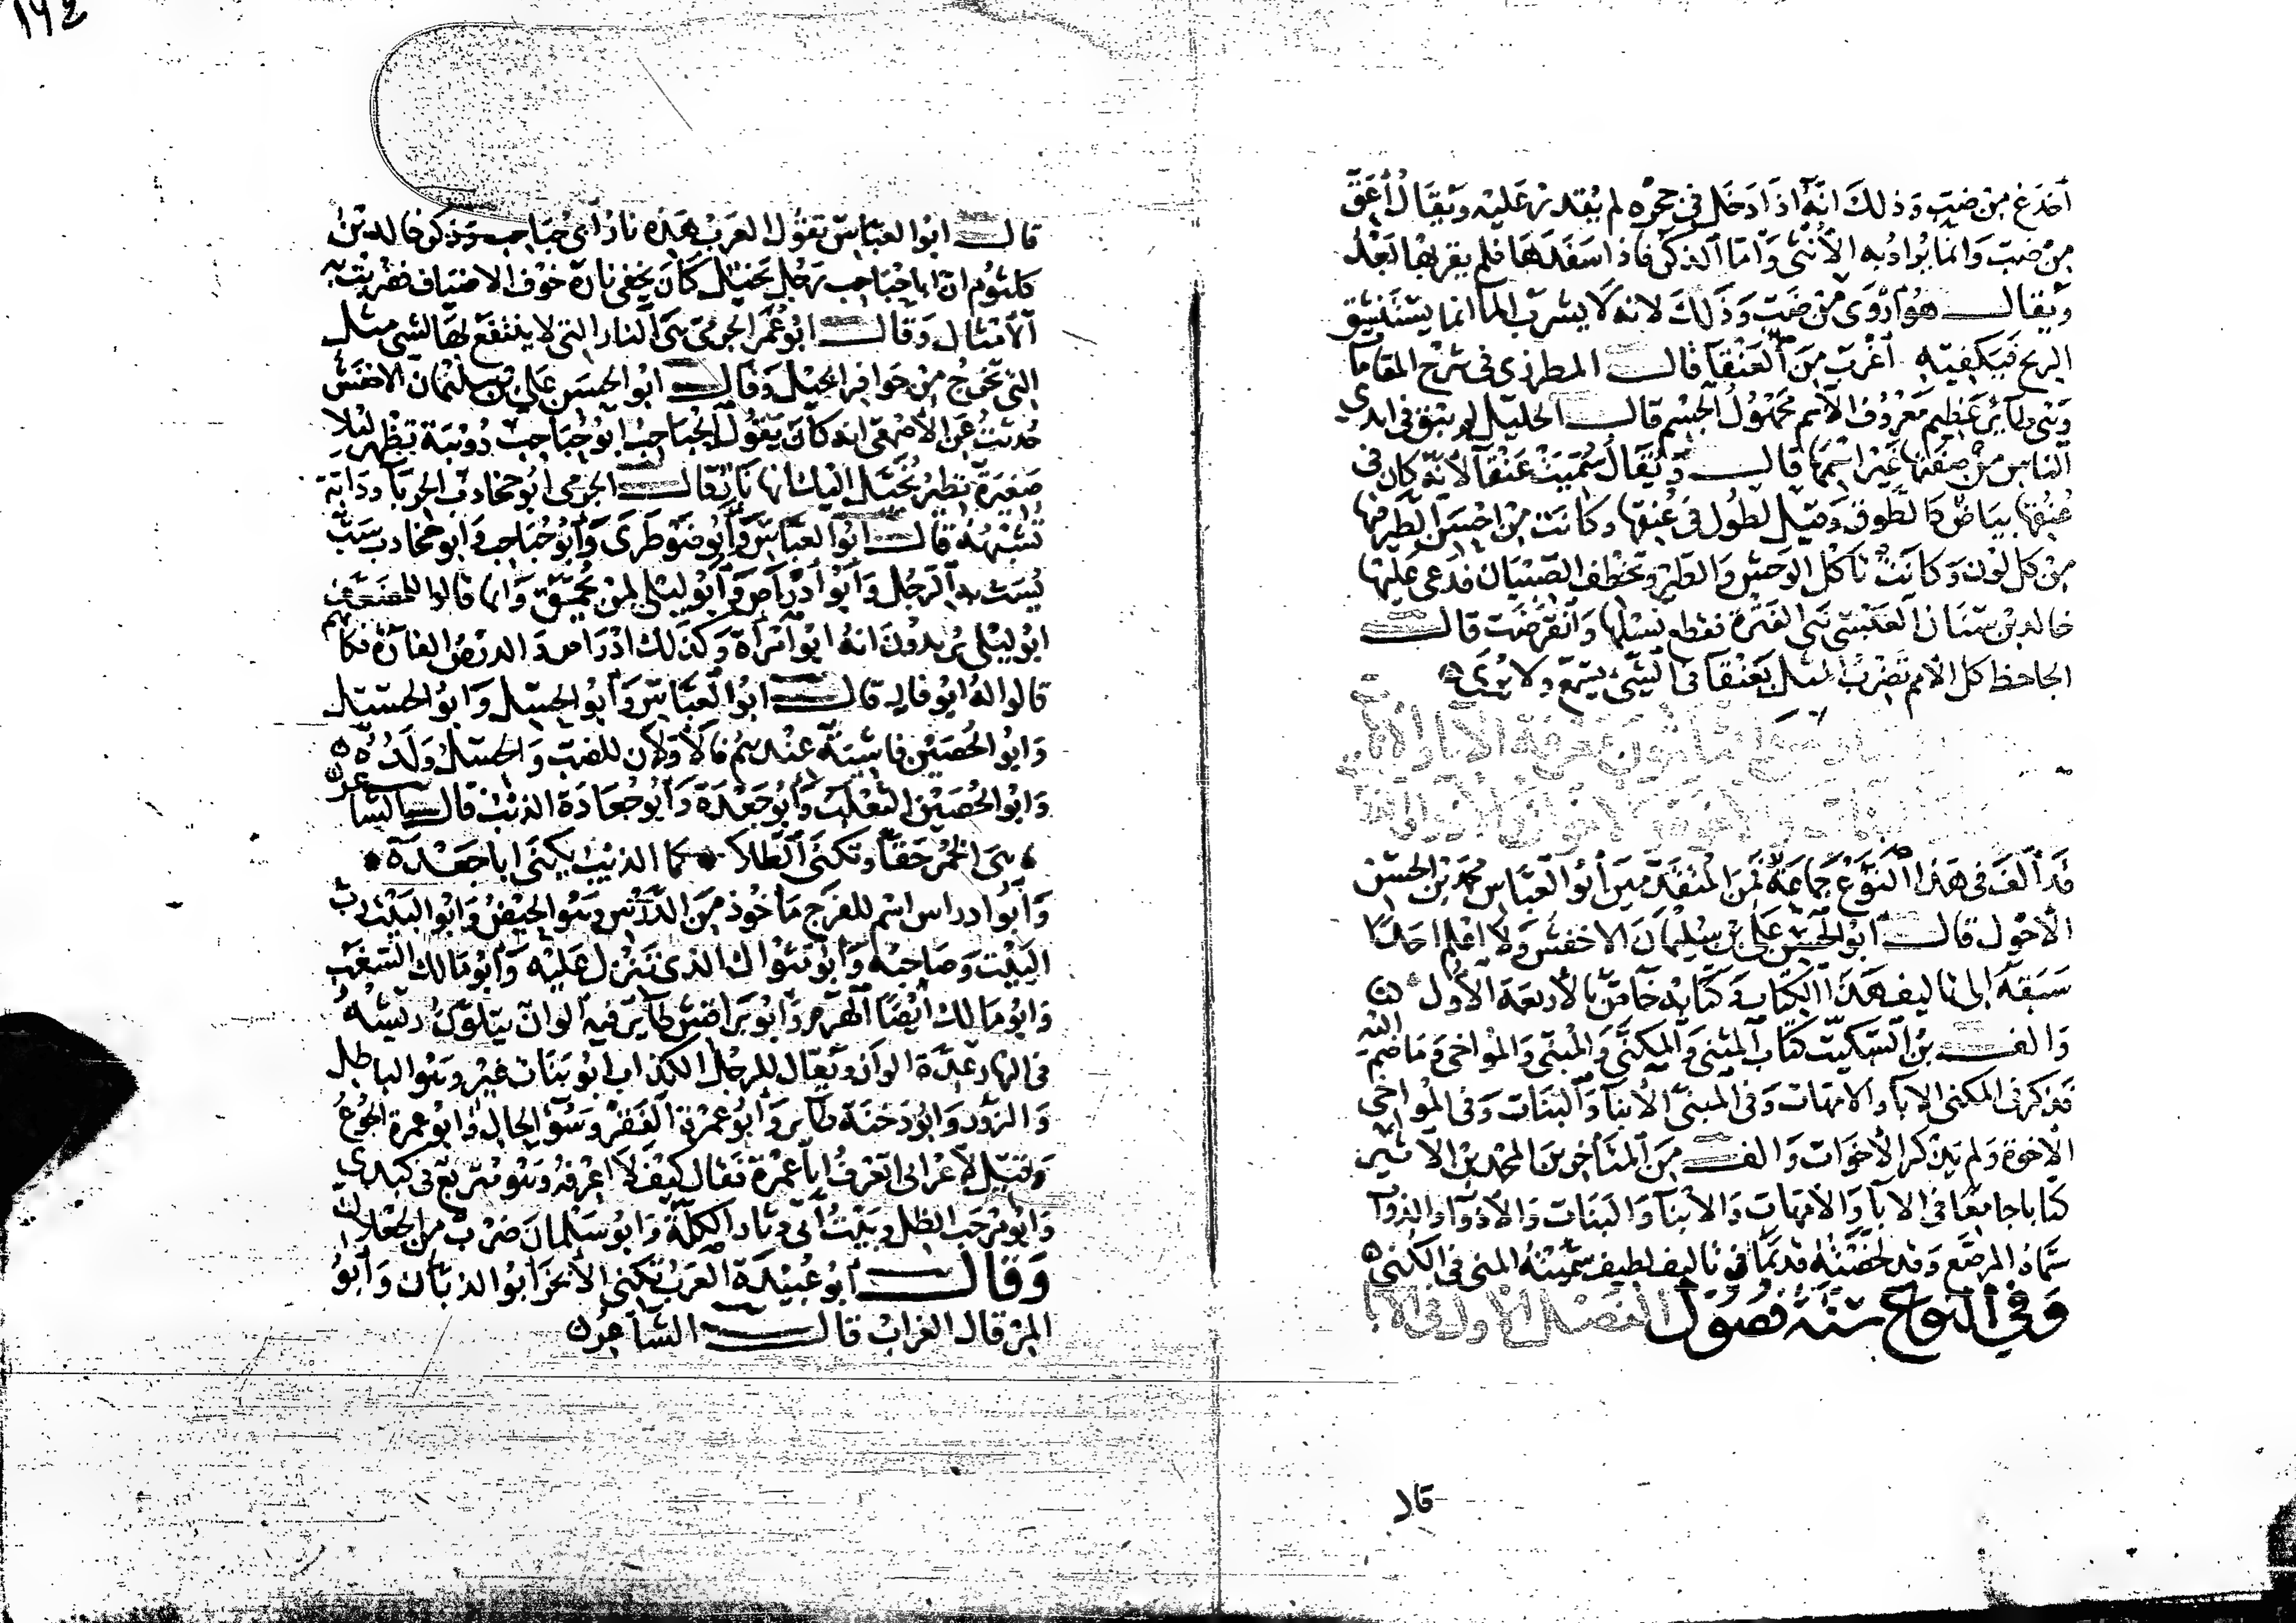 ١٩٤
أخدع من ضب وذلك انه اذا دخل في جحره لم يقدر عليه ويقال أعق
من ضب وانما يراد به الأنثى وأما الذكر فاذا سفدها فلم يقربها بعد
ويقال هو أروى من ضب وذلك لانه لا يشرب الما انما يستنشق
الريح فيكفيه أغرب من العنقا قال المطرزي في شرح المقاما
وهي طاير عظيم معروف الاسم مجهول الجسم قال الخليل لم يبق في ايدي
الناس من صفتها غير اسمها قال ويقال سميت عنقا لانه كان في
عنقها بياض كالطوق وقيل لطول في عنقها وكانت من احسن الطير فيها
من كل لون وكانت تأكل الوحش والطير وتخطف الصبيان فدعى عليها
خالد بن سنان العبسي نبي الفترة فقطع نسلها وانقرضت قال
الجاحظ كل الأمم تضرب المثل بعنقا في الشي يسمع ولا يرى
معرفة الآبا والأمهات
والاخوة والأخوات والأذوا والذوات
قد ألف في هذا النوع جماعة فمن المتقدمين أبو العباس محمد بن الحسن
الأحول قال أبو الحسن علي بن سليمان الاخفش ولا اعلم احدا
سبقه الى تاليف هذا الكتاب وكتابه خاص بالأربعة الأول
والف بن السكيت كتاب المثنى والمكنى والمبنى والمواخى وما ضم اليه
فذكر في المكنى الابا والامهات وفي المبنى الأبنا والبنات وفي المواخى
الاخوة ولم يذكر الأخوات والف من المتأخرين المجد بن الأثير
كتابا جامعا في الابا والأمهات والأبنا والبنات والأذوا والذوا
سماه المرصع وقد لخصته قديما في تاليف لطيف سميته المنى في الكنى
وفي النوع ستة فصول الفصل الأول في الآبا
قال
قال ابو العباس تقول العرب هذه نار أبي حباحب وذكر خالد بن
كلثوم ان ابا حباحب رجل بخيل كان يخفي ناره خوف الاضياف فضربت به
الأمثال وقال ابو عمر الجرمي هي النار التي لا ينتفع بها لشي مثل
التي تخرج من حوافر الخيل وقال ابو الحسن علي بن سليمان الاخفش
حدثت عن الأصمعي انه كان يقول الحباحب ابو حباحب دويبة تظهر ليلا
صغيرة تطير يخيل اليك انها نار قال الجرمي أبو جخادب الحربا ودابة
تشبهه قال ابو العباس وأبو ضوطرى وأبو حباحب وأبو جخادب سب
يسب به الرجل وأبو أدراص وأبو ليلى لمن يحمق وانما قالوا للمضعف
ابو ليلى يريدون انه ابو امرأة وكذلك ادراص والدرص الفأرة فكأنهم
قالوا له ابو فاره قال ابو العباس وأبو الحسل وابو الحسيل
وابو الحصين فاشية عندهم فالأولان للضب والحسل ولده
وابو الحصين الثعلب وأبو جعدة وأبو جعادة الذئب قال الشاعر
هي الخمر حقا وتكنى الطلا كما الذيب يكنى ابا جعده
وأبو ادراس اسم للفرج مأخوذ من الدرس وهو الحيض وابو البيت رب
البيت وصاحبه وابو مثواك الذي تنزل عليه وأبو مالك السغب
وابو مالك أيضا الهرم وأبو براقش طاير فيه ألوان يتلون ريشه
في النهار عدة الوان ويقال للرجل الكذاب ابو بنات غير وهو الباطل
والزور وابو دخنة طاير وأبو عمرة الفقر وسو الحال وابو عمرة الجوع
وقيل لاعرابي اتعرف ابا عمرة فقال كيف لا اعرفه وهو متربع في كبدي
وابو مرحب الظل وبيت أبي دثار الكلة وابو سلمان ضرب من الجعلان
وقال أبو عبيدة العرب تكنى الأبخر ابو الذبان وأبو
المرقال الغراب قال الشاعر